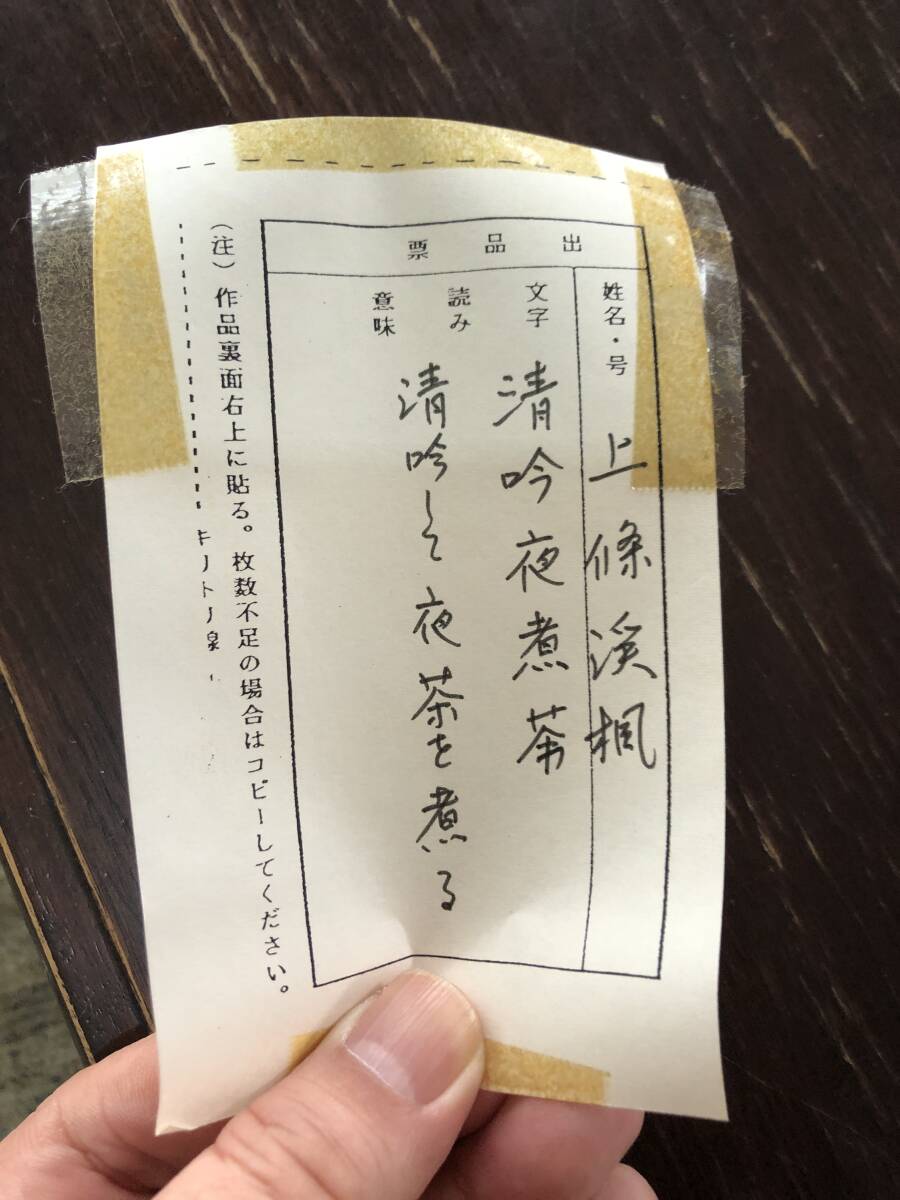 出品票
姓名・号 上條渓楓
文字 清吟夜煮茶
読み
意味
清吟して夜茶を煮る
(注) 作品裏面右上に貼る。枚数不足の場合はコピーしてください。
キリトリ線